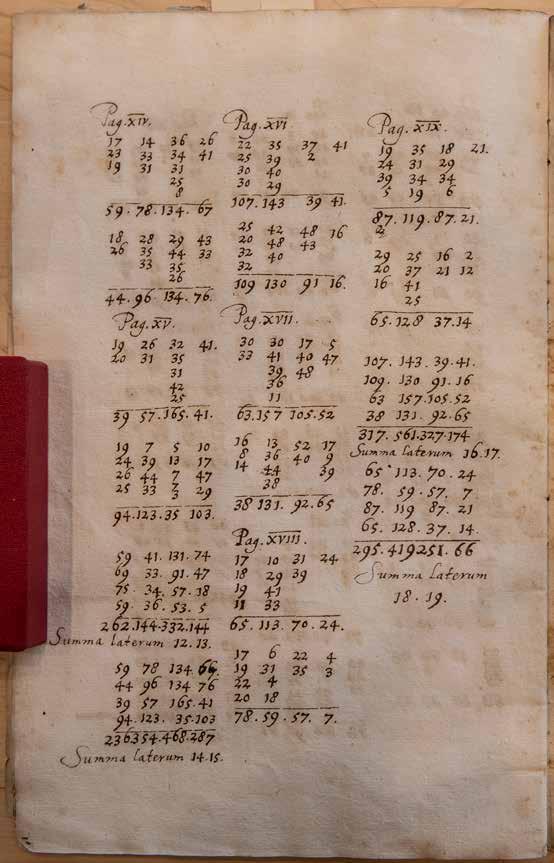 Pag. XIV.
17 14 36 26
23 33 34 41
19 31 31
25
8
59. 78. 134. 67
18 28 29 43
26 35 44 33
33 35
26
44. 96. 134. 76.
Pag. XV.
19 26 32 41.
20 31 35
31
42
25
39 57. 165. 41.
19 7 5 10
24 39 13 17
26 44 7 47
25 33 7 29
3
94. 123. 35 103.
59 41. 131. 74
69 33. 91. 47
75. 34. 57. 18
59. 36. 53. 5
262. 144. 332. 144
Summa laterum 12. 13.
59 78 134 66.
44 96 134 76
39 57 165. 41
94. 123. 35. 103
236 354. 468. 287
Summa laterum 14. 15.
Pag. XVI
22 35 37 41
25 39 2
30 40
30 29
107. 143 39 41.
25 42 48 16
20 48 43
32 40
32
109 130 91 16.
Pag. XVII.
30 30 17 5
33 41 40 47
39 48
36
11
63. 157 105. 52
16 13 52 17
8 36 40 9
14 44 39
38
38 131. 92. 65
Pag. XVIII.
17 10 31 24
18 29 39
19 41
11 33
65. 113. 70. 24.
17 6 22 4
19 31 35 3
22 4
20 18
78. 59. 57. 7.
Pag. XIX.
19 35 18 21.
24 31 29
39 34 34
5 19 6
87. 119. 87. 21.
2
29 25 16 2
20 37 21 12
16 41
25
65. 128 37. 14
107. 143. 39. 41.
109. 130 91. 16
63 157. 105. 52
38 131. 92. 65
317. 561. 327. 174
Summa laterum 16. 17.
65 113. 70. 24
78. 59. 57. 7
87. 119 87. 21
65. 128. 37. 14.
295. 419 251. 66
Summa laterum
18. 19.